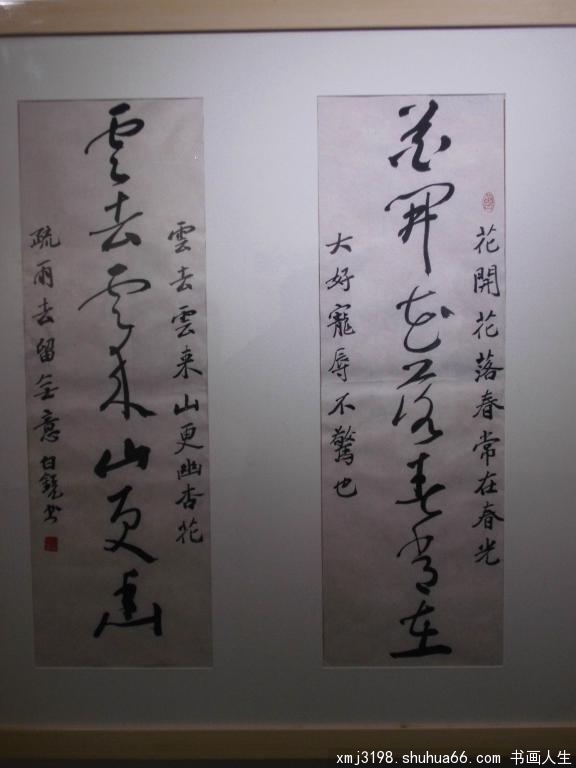 花開花落春常在春光
花開花落春常在
大好寵辱不驚也
雲去雲来山更幽杏花
雲去雲来山更幽
疏雨去留無意白鏡书
xmj3198.shuhua66.com 书画人生